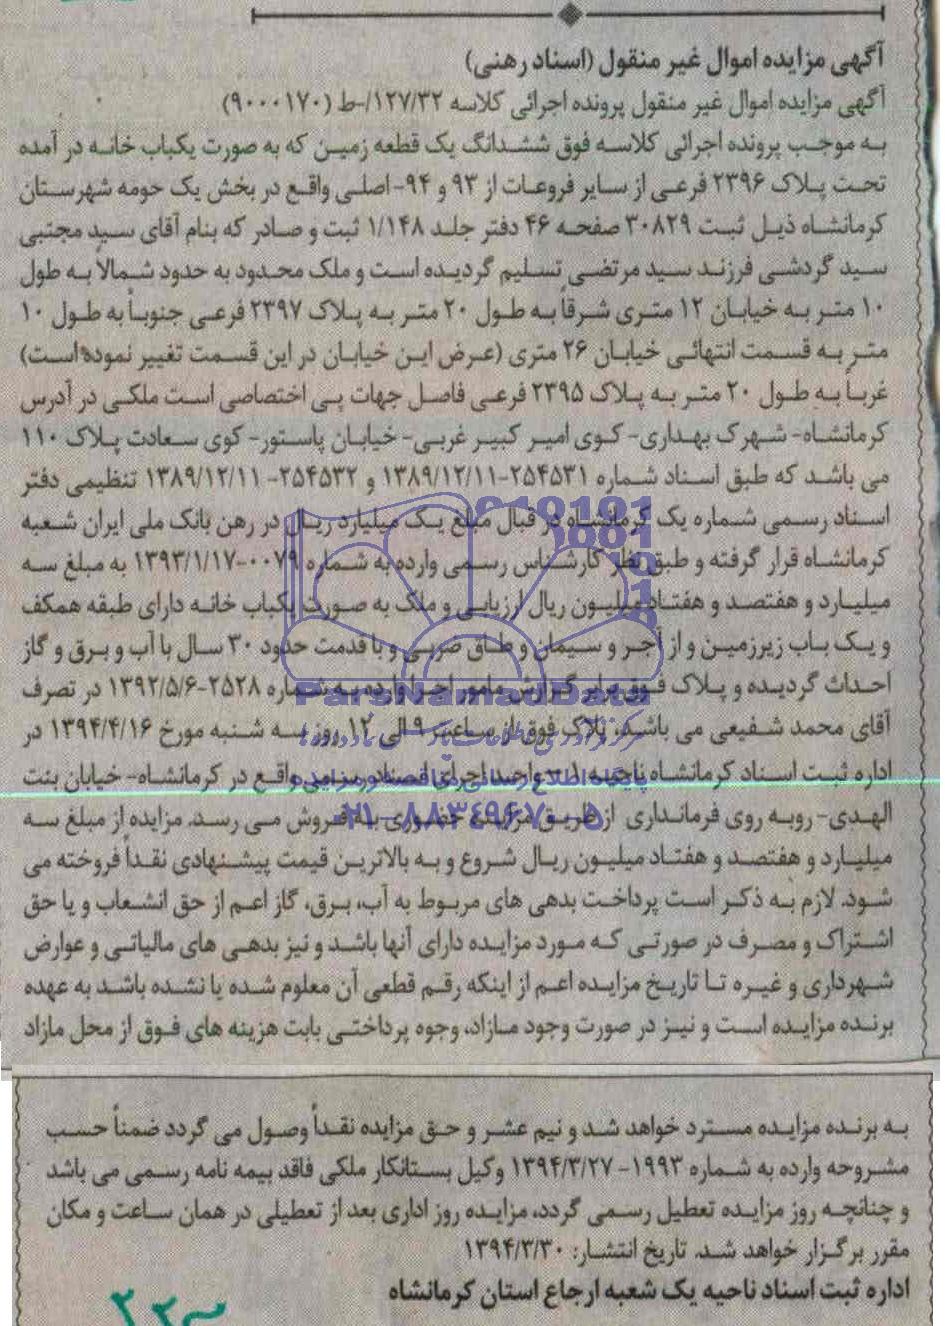 آگهی مزایده اموال غیر منقول (اسناد رهنی)
آگهی مزایده اموال غیر منقول پرونده اجرائی کلاسه ۱۲۷/۳۲/-ط (۹۰۰۰۱۷۰)
به موجب پرونده اجرائی کلاسه فوق ششدانگ یک قطعه زمین که به صورت یکباب خانه در آمده
تحت پلاک ۲۳۹۶ فرعی از سایر فروعات از ۹۳ و ۹۴-اصلی واقع در بخش یک حومه شهرستان
کرمانشاه ذیل ثبت ۳۰۸۲۹ صفحه ۴۶ دفتر جلد ۱/۱۴۸ ثبت و صادر که بنام آقای سید مجتبی
سید گردشی فرزند سید مرتضی تسلیم گردیده است و ملک محدود به حدود شمالاً به طول
۱۰ متر به خیابان ۱۲ متری شرقاً به طول ۲۰ متر به پلاک ۲۳۹۷ فرعی جنوباً به طول ۱۰
متر به قسمت انتهائی خیابان ۲۶ متری (عرض این خیابان در این قسمت تغییر نموده است)
غرباً به طول ۲۰ متر به پلاک ۲۳۹۵ فرعی فاصل جهات پی اختصاصی است ملکی در آدرس
کرمانشاه- شهرک بهداری- کوی امیر کبیر غربی- خیابان پاستور- کوی سعادت پلاک ۱۱۰
می باشد که طبق اسناد شماره ۲۵۴۵۳۱-۱۳۸۹/۱۲/۱۱ و ۲۵۴۵۳۲- ۱۳۸۹/۱۲/۱۱ تنظیمی دفتر
اسناد رسمی شماره یک کرمانشاه در قبال مبلغ یک میلیارد ریال در رهن بانک ملی ایران شعبه
کرمانشاه قرار گرفته و طبق نظر کارشناس رسمی وارده به شماره ۰۰۷۹-۱۳۹۳/۱/۱۷ به مبلغ سه
میلیارد و هفتصد و هفتاد میلیون ریال ارزیابی و ملک به صورت یکباب خانه دارای طبقه همکف
و یک باب زیرزمین و از آجر و سیمان و طاق ضربی و با قدمت حدود ۳۰ سال با آب و برق و گاز
احداث گردیده و پلاک فوق برابر گزارش مامور اجرا وارده به شماره ۲۵۲۸-۱۳۹۲/۵/۶ در تصرف
ParsNamadData
آقای محمد شفیعی می باشد، پلاک فوق از ساعت ۹ الی ۱۲ روز سه شنبه مورخ ۱۳۹۴/۴/۱۶ در
اداره ثبت اسناد کرمانشاه ناحیه ۱ واحد اجرای اسناد رسمی واقع در کرمانشاه- خیابان بنت
پایگاه اطلاع رسانی مناقصه و مزایده
الهدی- روبه روی فرمانداری از طریق مزایده حضوری به فروش می رسد. مزایده از مبلغ سه
۰۲۱-۸۸۳۴۹۶۷۰-۵
میلیارد و هفتصد و هفتاد میلیون ریال شروع و به بالاترین قیمت پیشنهادی نقداً فروخته می
شود. لازم به ذکر است پرداخت بدهی های مربوط به آب، برق، گاز اعم از حق انشعاب و یا حق
اشتراک و مصرف در صورتی که مورد مزایده دارای آنها باشد و نیز بدهی های مالیاتی و عوارض
شهرداری و غیره تا تاریخ مزایده اعم از اینکه رقم قطعی آن معلوم شده یا نشده باشد به عهده
برنده مزایده است و نیز در صورت وجود مازاد، وجوه پرداختی بابت هزینه های فوق از محل مازاد
به برنده مزایده مسترد خواهد شد و نیم عشر و حق مزایده نقداً وصول می گردد ضمناً حسب
مشروحه وارده به شماره ۱۹۹۳- ۱۳۹۴/۳/۲۷ وکیل بستانکار ملکی فاقد بیمه نامه رسمی می باشد
و چنانچه روز مزایده تعطیل رسمی گردد، مزایده روز اداری بعد از تعطیلی در همان ساعت و مکان
مقرر برگزار خواهد شد. تاریخ انتشار: ۱۳۹۴/۳/۳۰
اداره ثبت اسناد ناحیه یک شعبه ارجاع استان کرمانشاه